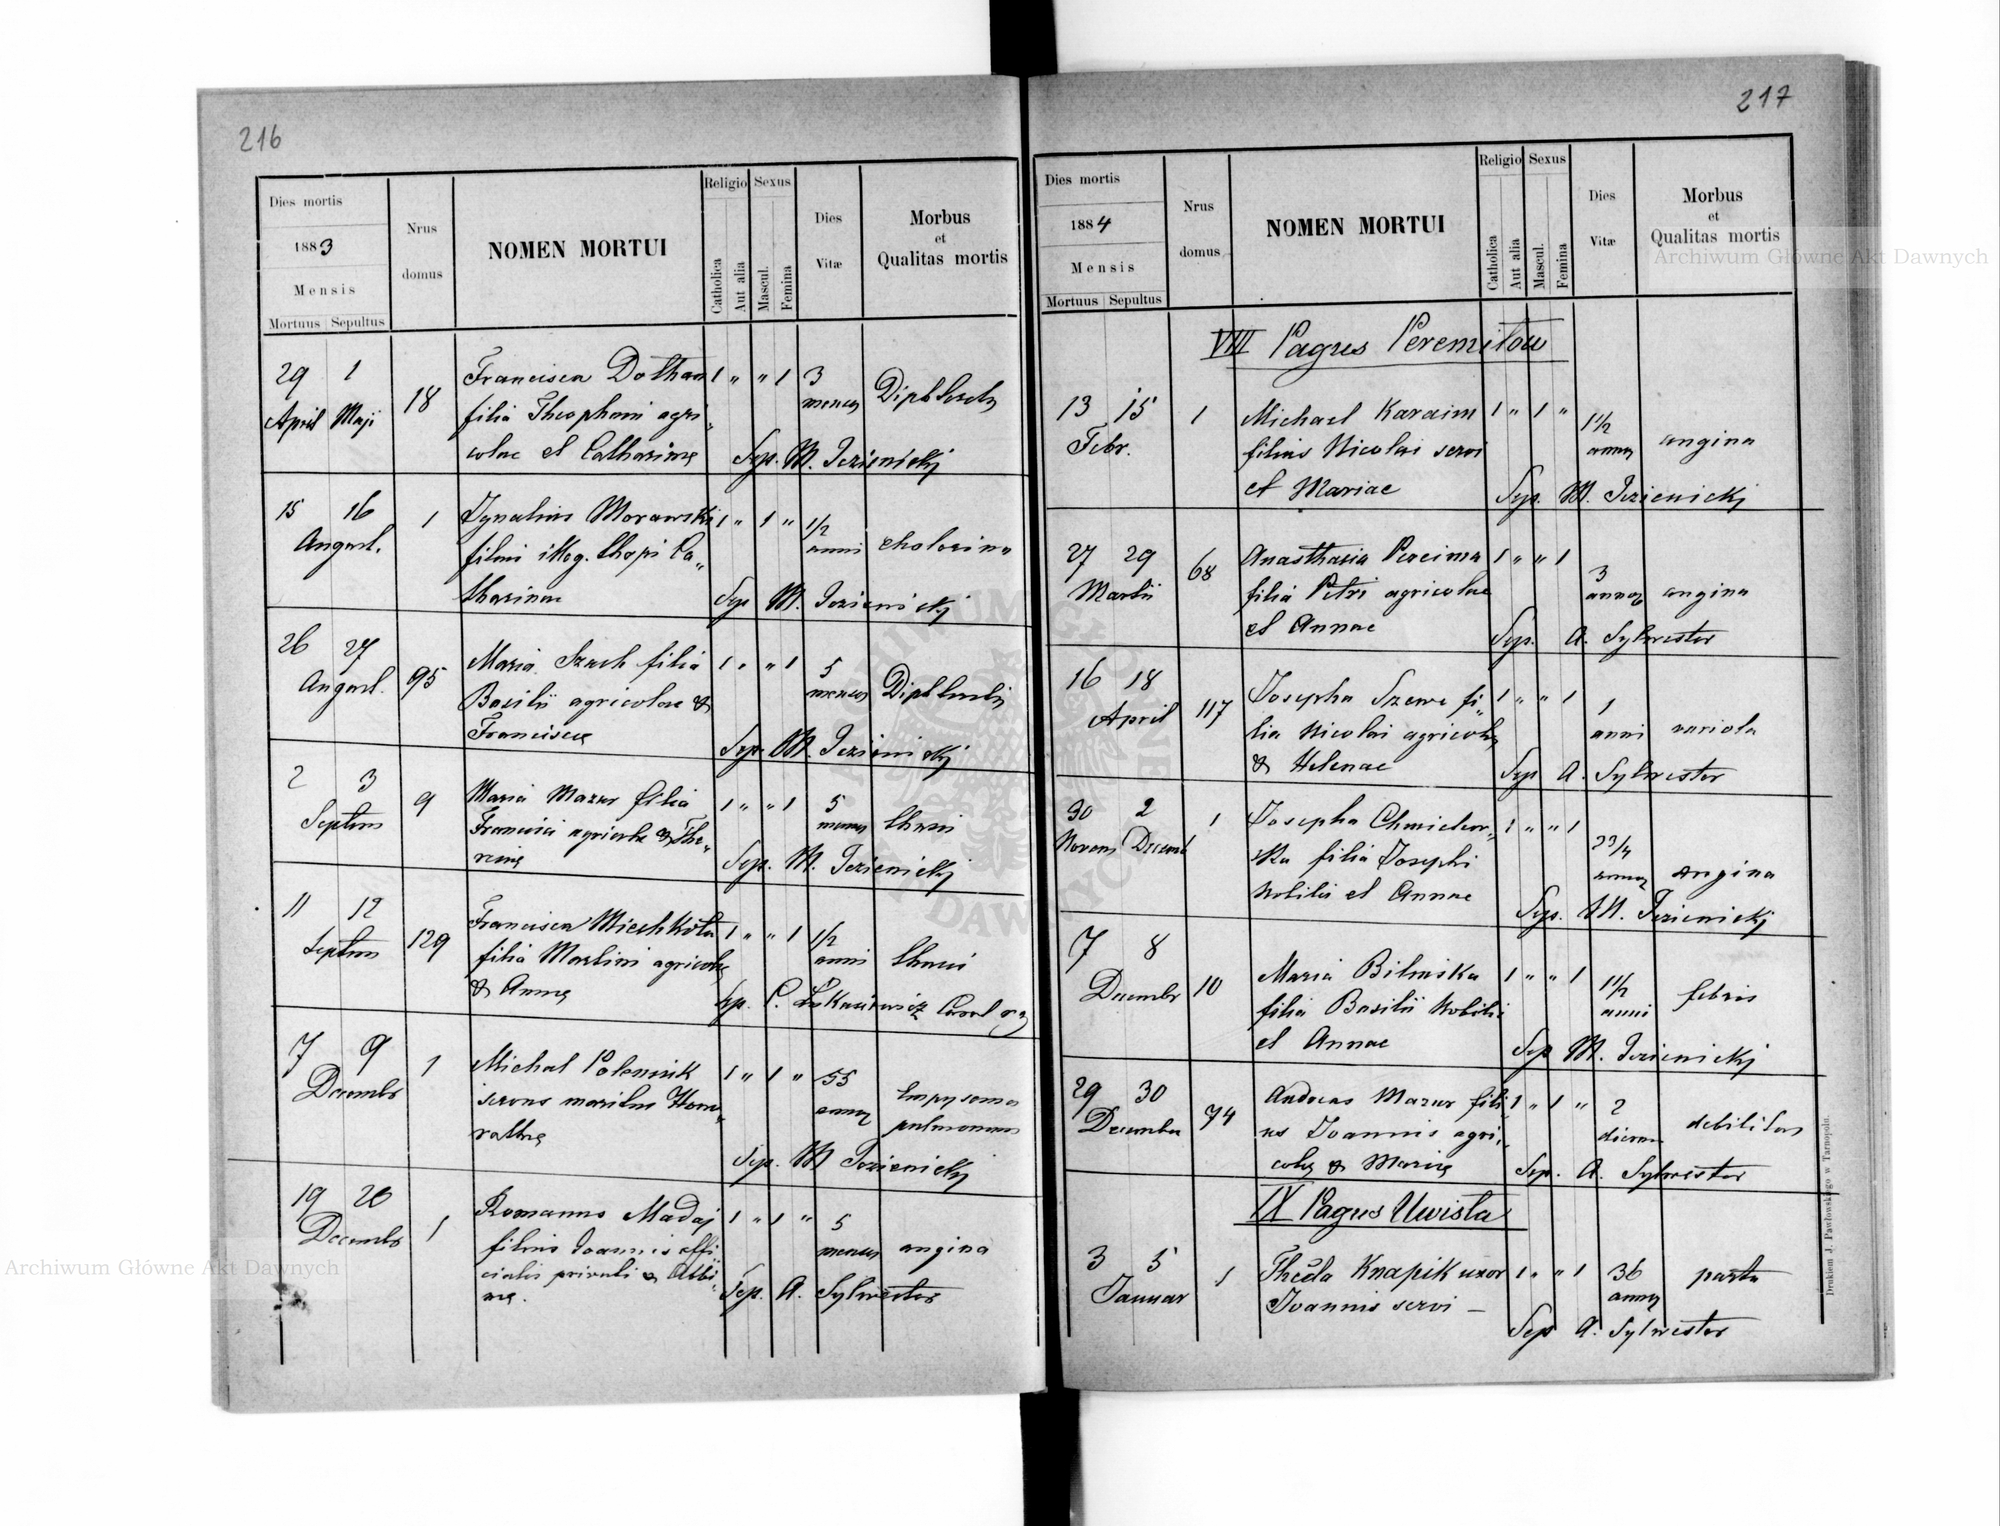 216
Dies mortis
1883
Mensis
Mortuus Sepultus
Nrus domus
NOMEN MORTUI
Religio
Catholica
Aut alia
Sexus
Mascul.
Femina
Dies Vitæ
Morbus et Qualitas mortis
29 1 18 Francisca 1 " " 1 3
April Maji filia Theophani agri"
colae et Catharinę Sep. M. Jezienickj
15 16 1 Ignatius Morawski 1 " 1 " 1/2
August. anni cholerina
tharinae Sep M. Jezienickj
26 27 95 Maria filia 1 " " 1 5
August. Basilii agricolae &
Franciscę Sep. M. Jezienickj
2 3 9 Maria Mazur filia 1 " " 1 5
Septem Francisci agricolę & The"
Sep. M. Jezienickj
11 12 129 Francisca 1 " " 1 1/2
Septem filia Martini agricolę anni
& Annę Sep. C.
7 9 1 Michal 1 " 1 " 55
Decembr servus maritus Hono" annor
rathę pulmonum
Sep. M Jezienickj
19 20 1 Romanus Madaj 1 " 1 " 5
Decembr filius Joannis offi" angina
cialis privati & Albi"
nę. Sep. A. Sylwester
217
Dies mortis
1884
Mensis
Mortuus Sepultus
Nrus domus
NOMEN MORTUI
Religio
Catholica
Aut alia
Sexus
Mascul.
Femina
Dies Vitæ
Morbus et Qualitas mortis
VIII Pagus Peremilow
13 15 1 Michael Karaim 1 " 1 " 1 1/2
Febr. filius Nicolai servi angina
et Mariae Sep. M. Jezienickj
27 29 68 Anasthasia 1 " " 1 3
Martii filia Petri agricolae angina
et Annae Sep. A. Sylwester
16 18 117 Josepha Szewc fi" 1 " " 1 1
April lia Nicolai agricolę anni variola
& Helenae Sep A. Sylwester
30 2 1 Josepha 1 " " 1 2 3/4
Novem Decemb ska filia Josephi angina
Nobilis et Annae Sep. M. Jezienickj
7 8 10 Maria Bilinska 1 " " 1 1 1/2
Decembr filia Basilii Nobilis anni febris
et Annae Sep M. Jezienickj
29 30 74 Andreas Mazur fili" 1 " 1 " 2
Decembr us Joannis agri" dierum debilitas
colę & Marię Sep. A. Sylwester
IX Pagus Uwisla
3 5 1 Knapik uxor 1 " " 1 36 partu
Januar Joannis servi — annor
Sep A. Sylwester
Drukiem J. Pawłowskiego w Tarnopolu.
Archiwum Główne Akt Dawnych
Archiwum Główne Akt Dawnych
ARCHIWUM GŁÓWNE AKT DAWNYCH